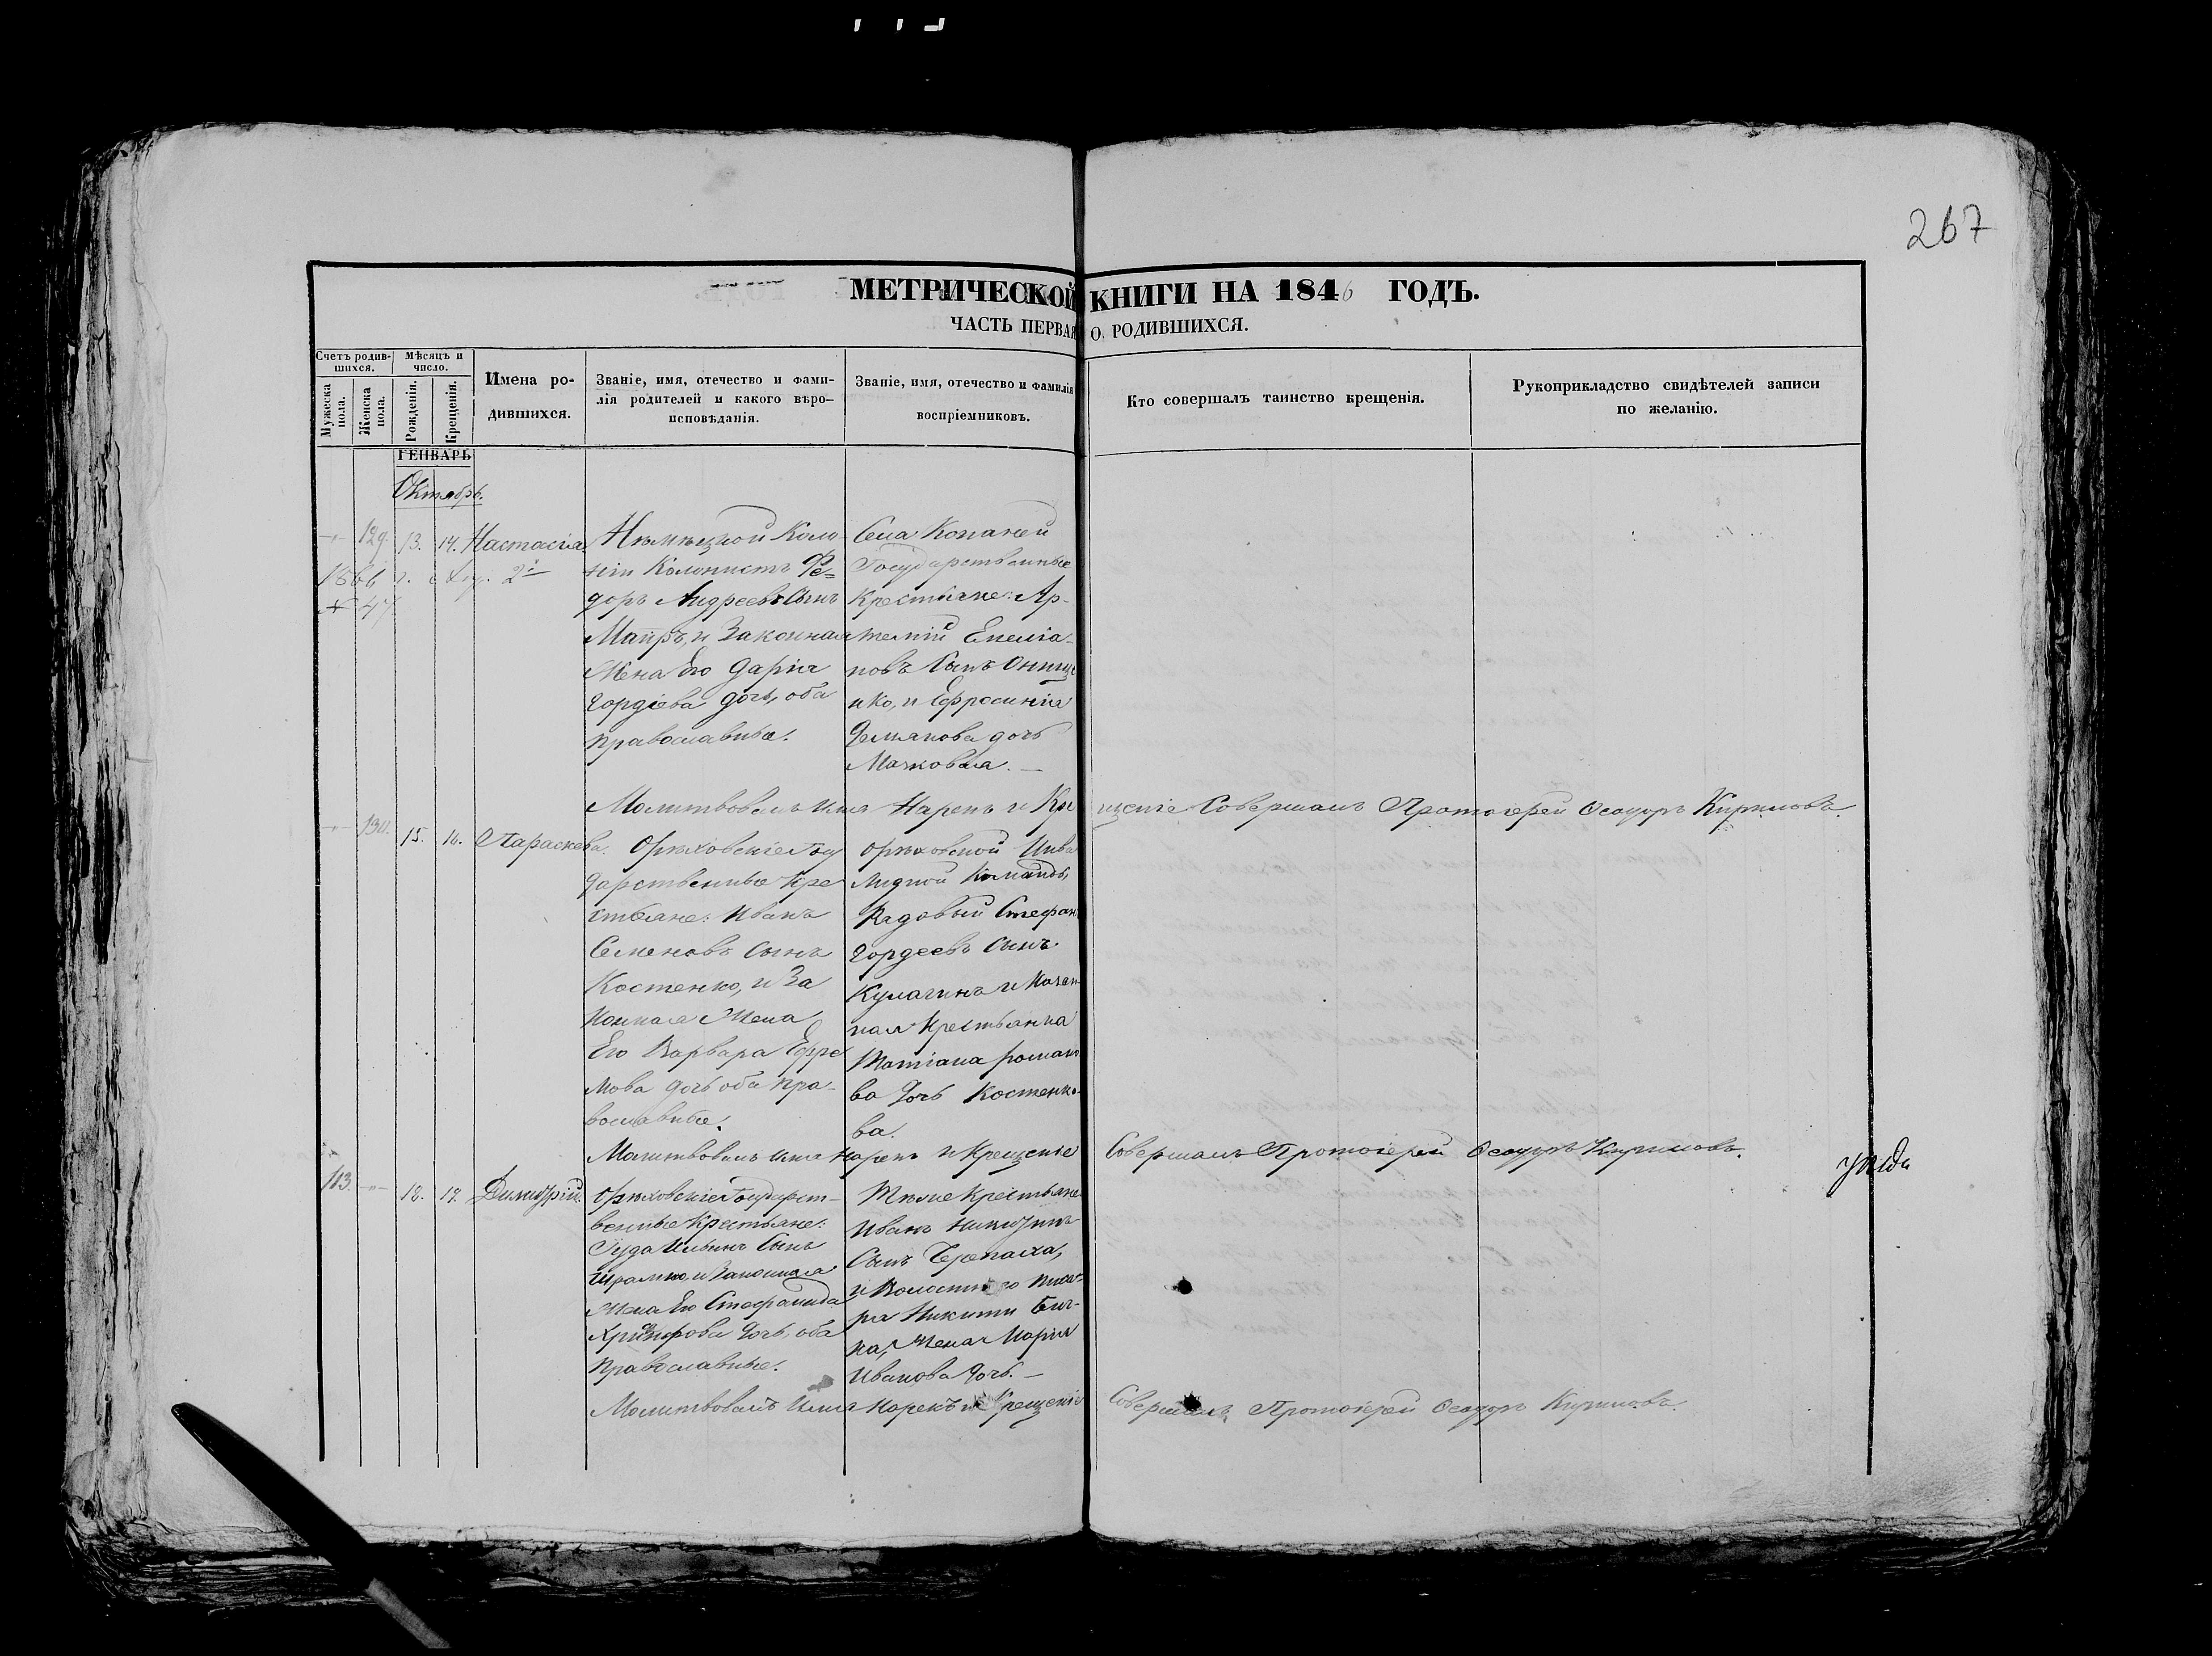 267
МЕТРИЧЕСКОЙ КНИГИ НА 1846 ГОДЪ.
ЧАСТЬ ПЕРВАЯ О РОДИВШИХСЯ.
Счетъ родив-
шихся.
Мужеска пола.
Женска пола.
Мѣсяцъ и
число.
Рожденія.
Крещенія.
Имена ро-
дившихся.
Званіе, имя, отечество и фами-
лія родителей и какого вѣро-
исповѣданія.
Званіе, имя, отечество и фамилія
воспріемниковъ.
Кто совершалъ таинство крещенія.
Рукоприкладство свидѣтелей записи
по желанію.
ГЕНВАРЬ
Октябрь.
129. 13. 14. Настасія
1866 г.
№ 47
Нѣмѣцкой Коло
ніи Колонистъ Фе=
доръ Андреевъ Сынъ
и Законная
Жена Его Дарія
Гордіева дочь, оба
православные.
Села Копаней
Государственные
Крестьяне: Ар-
темій Емеліа-
новъ Сынъ Онище
нко, и Ефросинія
Демянова дочь
Мачковая.
Молитвовалъ имя Нарекъ и Кре щеніе Совершалъ Протоіерей Ѳеодоръ Кириловъ.
130. 15. 16. Параскева.
Орѣховскіе Госу
дарственные Кре
стьяне: Иванъ
Семеновъ Сынъ
Костенко, и За
конная Жена
Его Варвара Ефре
мова дочь оба пра-
вославные.
Орѣховской Инва
лидной Команды,
Рядовый Стефанъ
Гордеевъ Сынъ
Кулагинъ и Казен-
ная Крестьянка
Татіана Романо
ва Дочь Костенко-
ва.
Молитвовалъ имя Нарекъ и Крещеніе Совершалъ Протоіерей Ѳеодоръ Кириловъ.
113. 18. 19. Димитрій.
Орѣховскіе Государст-
венные Крестьяне:
Іуда Ильинъ Сынъ
и Законная
Жена Его Стефанида
дочь, оба
Православные.
Тѣже Крестьяне
Иванъ Никитинъ
Сынъ Черепаха,
и Волостного писа-
ря Никиты
Жена Марія
Иванова дочь.
Молитвовалъ Имя Нарекъ и Крещеніе Совершалъ Протоіерей Ѳеодоръ Кириловъ.